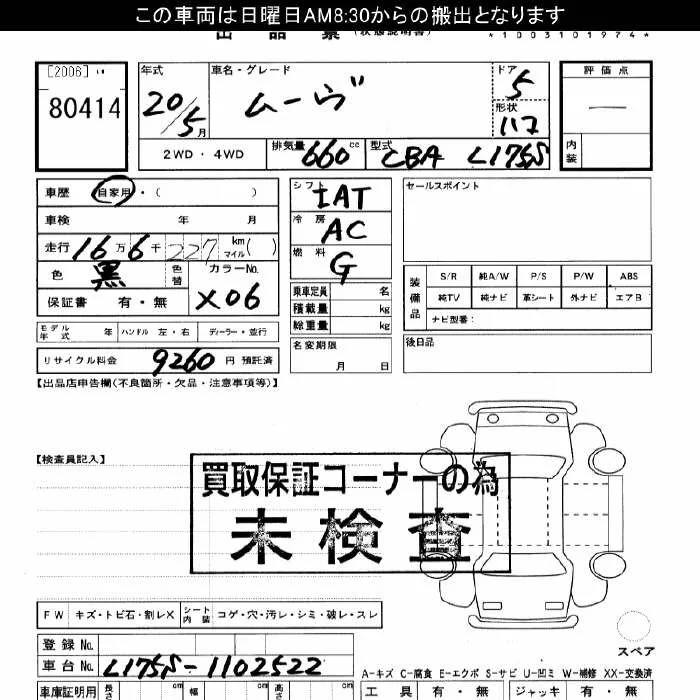 この車両は日曜日AM8:30からの搬出となります
出品票(状態説明書)
*1003101974*
[2006]
80414
年式 20/5月
車名・グレード ムーヴ
ドア 5
形状 ハコ
評価点 ―
内装
2WD・4WD
排気量 660cc
型式 CBA L175S
車歴 自家用・( )
車検 年 月
走行 16万6千227 km マイル( )
色 黒 色替 カラーNo. X06
保証書 有・無
モデル年式 年 ハンドル 左・右 ディーラー・並行
リサイクル料金 9260円 預託済
シフト IAT
冷房 AC
燃料 G
乗車定員 名
積載量 kg
総重量 kg
名変期限 月 日
セールスポイント
装備品
S/R 純A/W P/S P/W ABS
純TV 純ナビ 革シート 外ナビ エアB
ナビ型番:
後日品
【出品店申告欄(不良箇所・欠品・注意事項等)】
【検査員記入】
買取保証コーナーの為
未検査
FW キズ・トビ石・割レX シート内装 コゲ・穴・汚レ・シミ・破レ・スレ
スペア
登録No.
車台No. L175S-1102522
A-キズ C-腐食 E-エクボ S-サビ U-凹ミ W-補修 XX-交換済
車庫証明用 長さ cm 幅 cm 高さ cm
工具 有・無 ジャッキ 有・無